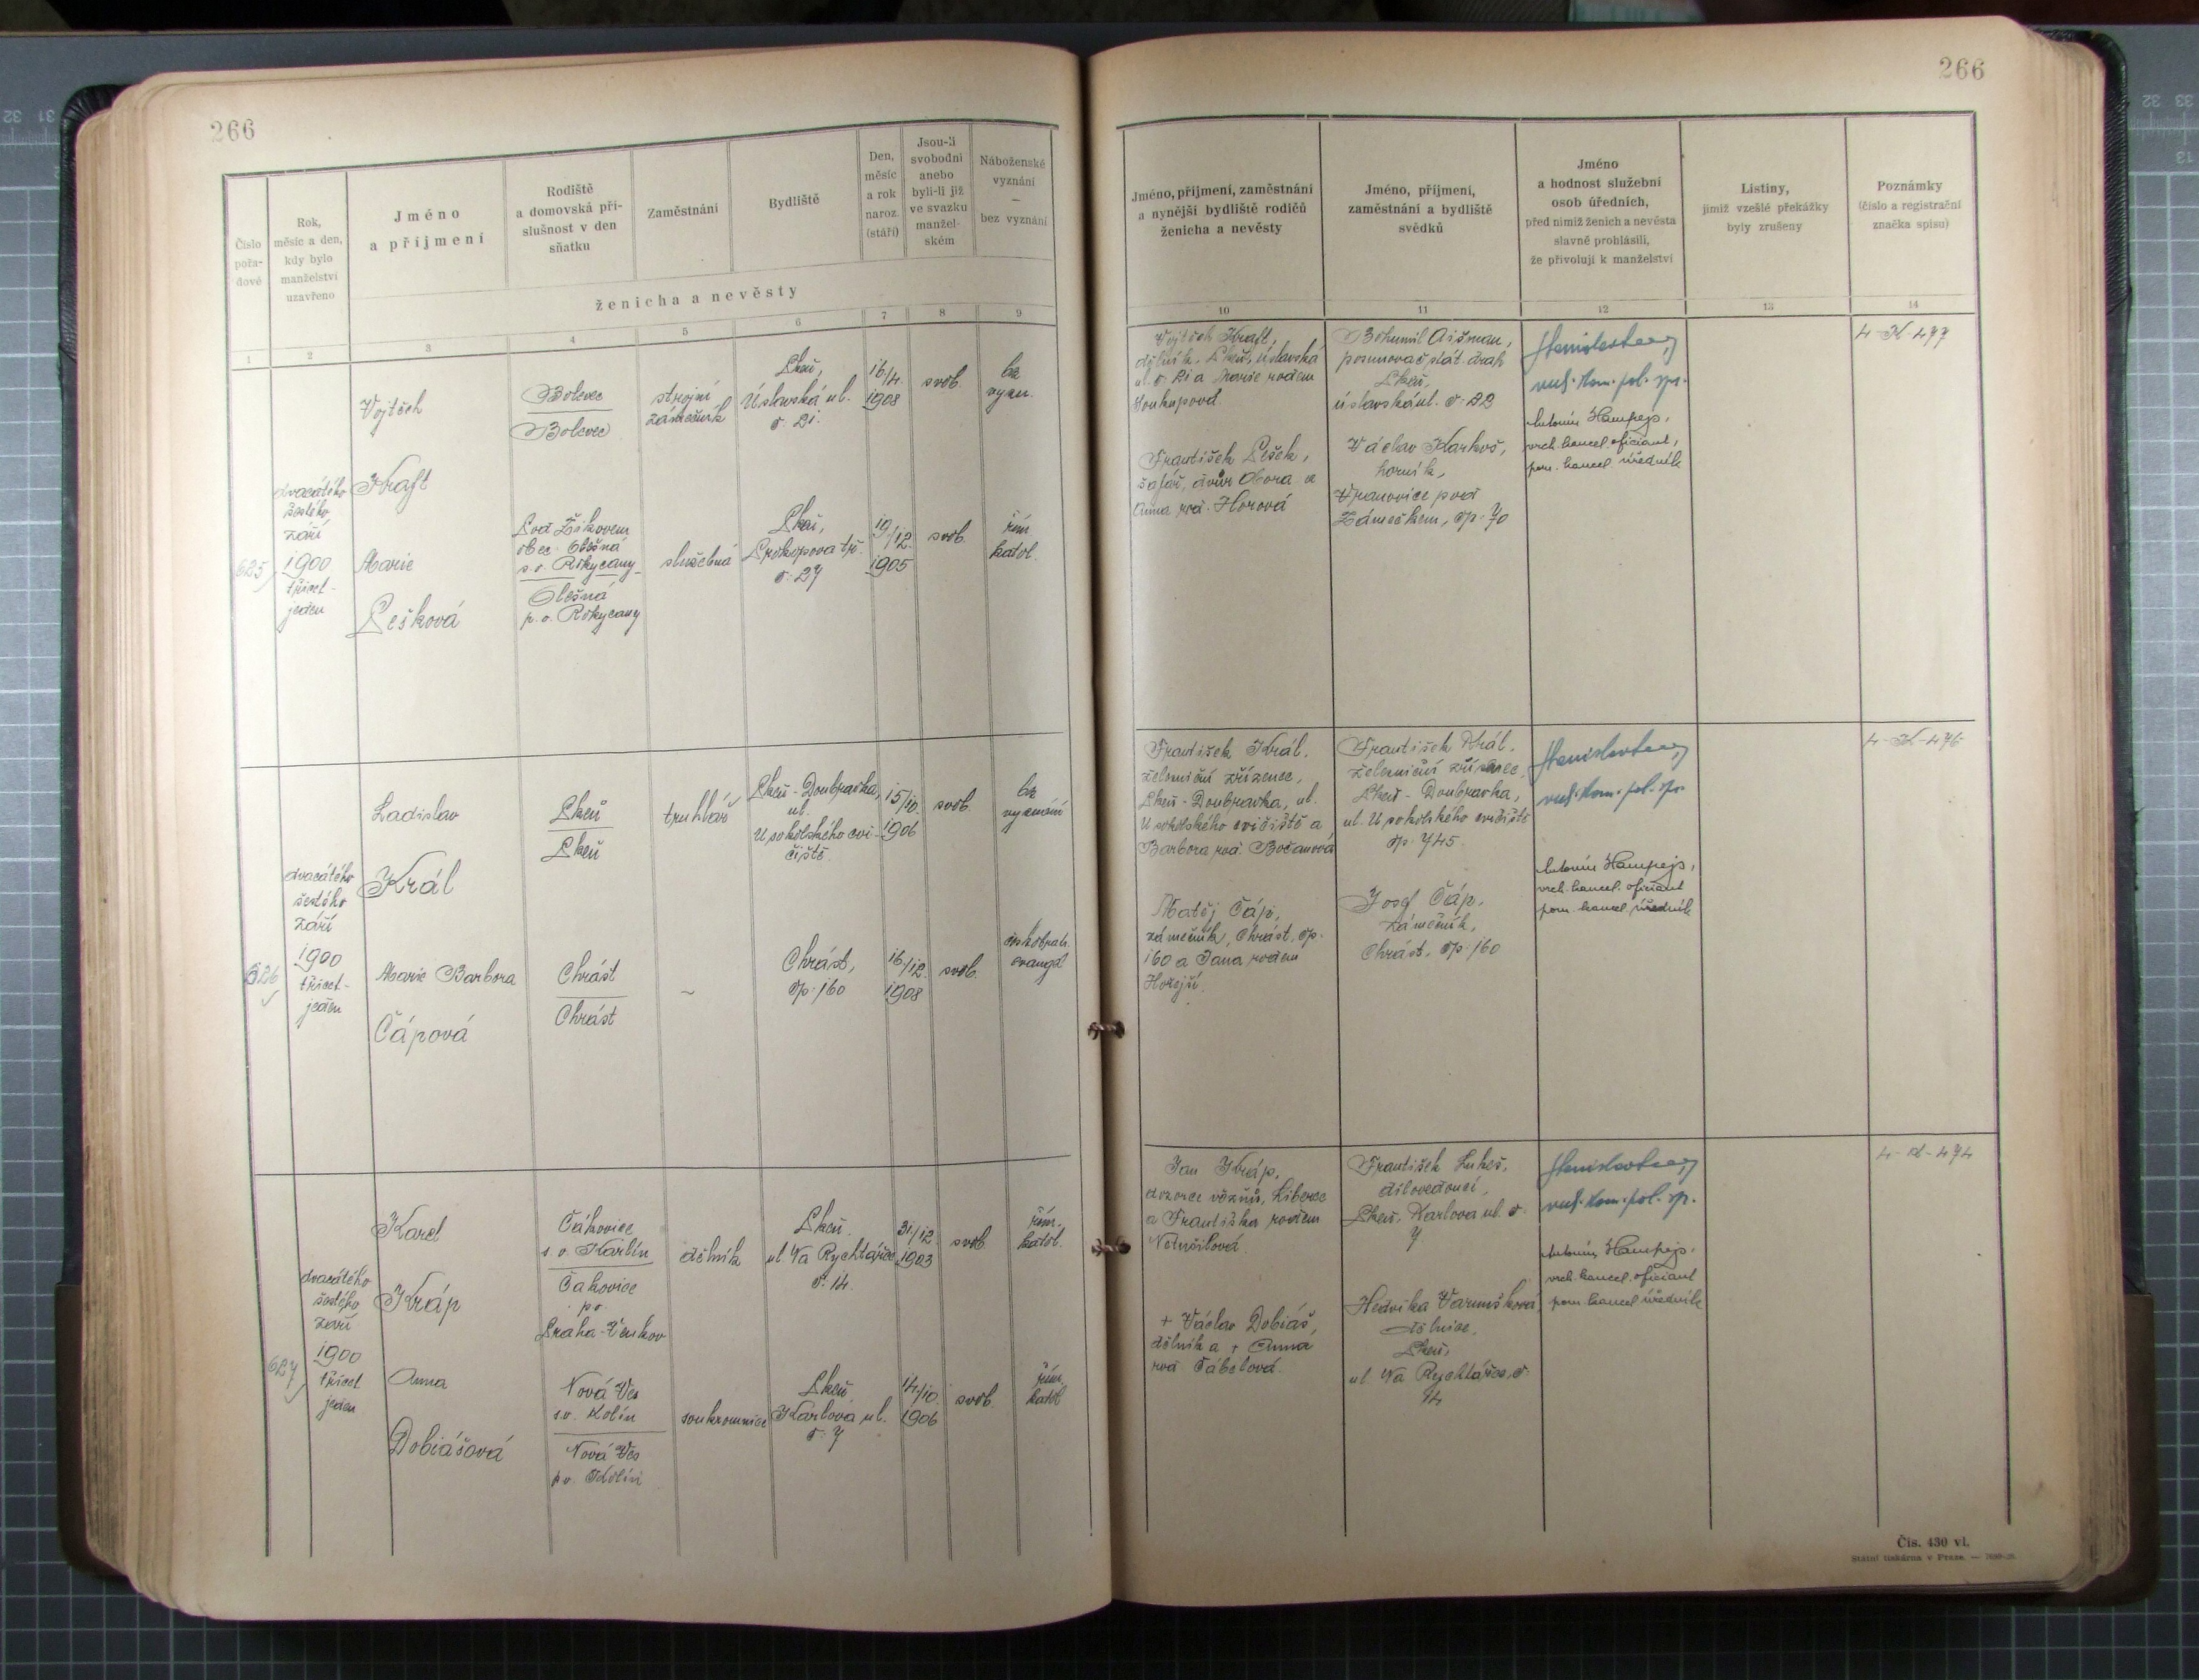 266
266
Číslo
pořa-
dové
Rok,
měsíc a den,
kdy bylo
manželství
uzavřeno
Jméno
a příjmení
Rodiště
a domovská pří-
slušnost v den
sňatku
Zaměstnání
Bydliště
Den,
měsíc
a rok
naroz.
(stáří)
Jsou-li
svobodni
anebo
byli-li již
ve svazku
manžel-
ském
Náboženské
vyznání
—
bez vyznání
ženicha a nevěsty
1 2 3 4 5 6 7 8 9
Jméno, příjmení, zaměstnání
a nynější bydliště rodičů
ženicha a nevěsty
Jméno, příjmení,
zaměstnání a bydliště
svědků
Jméno
a hodnost služební
osob úředních,
před nimiž ženich a nevěsta
slavně prohlásili,
že přivolují k manželství
Listiny,
jimiž vzešlé překážky
byly zrušeny
Poznámky
(číslo a registrační
značka spisu)
10 11 12 13 14
625
dvacátého
šestého
září
1900
třicet-
jeden
Vojtěch
Kraft
Bolevec
Bolevec
strojní
zámečník
Plzeň,
Úslavská ul.
č. 21.
16/4.
1908
svob.
bez
vyzn.
Marie
Pešková
Pod Žikovem
obec Olešná
s. o. Rokycany
Olešná
p. o. Rokycany
služebná
Plzeň,
Prokopova tř.
č. 27
19/12.
1905
svob.
řím
katol.
Vojtěch Kraft,
dělník, Plzeň, Úslavská
ul. č. 21 a Marie rodem
Soukupová
František Pešek,
šafář, dvůr Obora a
Anna roz. Horová
Bohumil Aišman,
posunovač stát. drah
Plzeň,
Úslavská ul. č. 22
Václav Karhoš,
horník,
Vranovice pod
Zámečkem, čp. 70
Antonín Hampejs,
vrch. kancel. oficiant,
pom. kancel. úředník
4-K-477
626
dvacátého
šestého
září
1900
třicet-
jeden
Ladislav
Král
Plzeň
Plzeň
truhlář
Plzeň-Doubravka,
ul.
U sokolského cvi-
čiště.
15/10.
1906
svob.
bez
vyznání
Marie Barbora
Čápová
Chrást
Chrást
~
Chrást,
čp. 160
16/12.
1908
svob.
českobratr.
evangel
František Král,
železniční zřízenec,
Plzeň-Doubravka, ul.
U sokolského cvičiště a
Barbora roz. Bočanová
Matěj Čáp,
zámečník, Chrást, čp.
160 a Jana rodem
Hořejší.
František Král,
železniční zřízenec,
Plzeň-Doubravka,
ul. U sokolského cvičiště
čp. 745.
Josef Čáp,
zámečník,
Chrást, čp. 160
Antonín Hampejs,
vrch. kancel. oficiant
pom. kancel. úředník
4-K-476
627
dvacátého
šestého
září
1900
třicet
jeden
Karel
Kráp
Čakovice
s. o. Karlín
Čakovice
p. o.
Praha-Venkov
dělník
Plzeň.
ul. Na Rychtářce
č. 14.
31/12.
1903
svob.
řím.
katol.
Anna
Dobiášová
Nová Ves
s. o. Kolín
Nová Ves
p. o. Kolín
soukromnice
Plzeň
Karlova ul.
č. 7
14/10.
1906
svob.
řím.
katol
Jan Kráp,
dozorce vězňů, Liberec
a Františka rodem
Netušilová.
+ Václav Dobiáš,
dělník a + Anna
roz. Tábelová.
František Lukeš,
dílovedoucí,
Plzeň, Karlova ul. č.
7
Hedvika Varmušková,
dělnice,
Plzeň,
ul. Na Rychtářce, č.
14
Antonín Hampejs,
vrch. kancel. oficiant
pom. kancel. úředník
4-K-474
Čís. 430 vl.
Státní tiskárna v Praze.